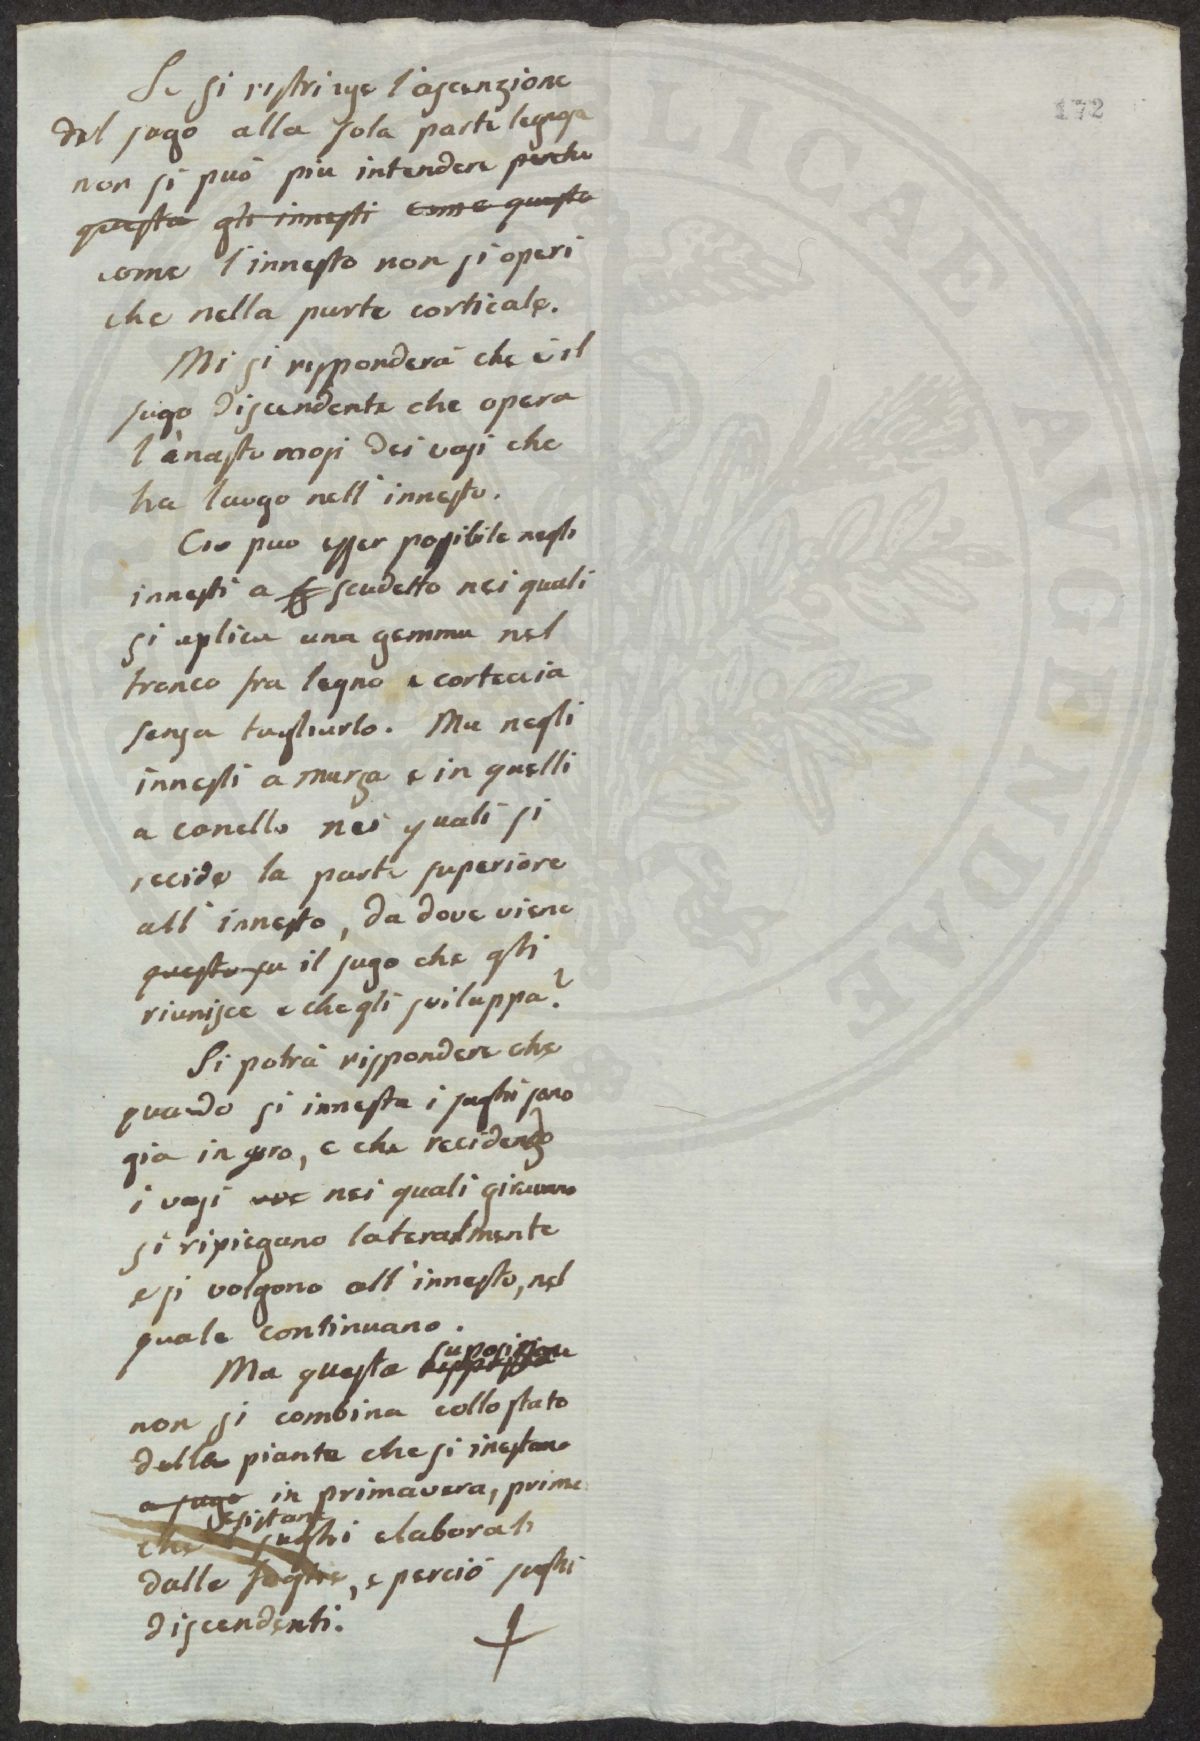 172
Se si restringe l'ascenzione
del sugo alla sola parte legnosa
non si può piu intendere perche
questa gli innesti come questo
come l'innesto non si operi
che nella parte corticale.
Mi si rispponderà che è il
sugo discendente che opera
l'anastomosi dei vasi che
ha luogo nell'innesto.
Cio puo esser possibile negli
innesti a scudetto nei quali
si aplica una gemma nel
tronco fra legno e corteccia
senza tagliarlo. Ma negli
innesti a marza e in quelli
a canello nei quali si
recide la parte superiore
all'innesto, da dove viene
questo su il sugo che gli
riunisce e che gli sviluppa?
Si potrà risppondere che
quando si innesta i sughi sono
gia in giro, e che recidendo
i vasi nei quali giravano
si ripiegano lateralmente
e si volgono all'innesto, nel
quale continuano.
Ma questa suposizione
non si combina collo stato
della pianta che si inestano
a sugo in primavera, prima
che esistano sughi elaborati
dalle foglie, e perciò sughi
discendenti.